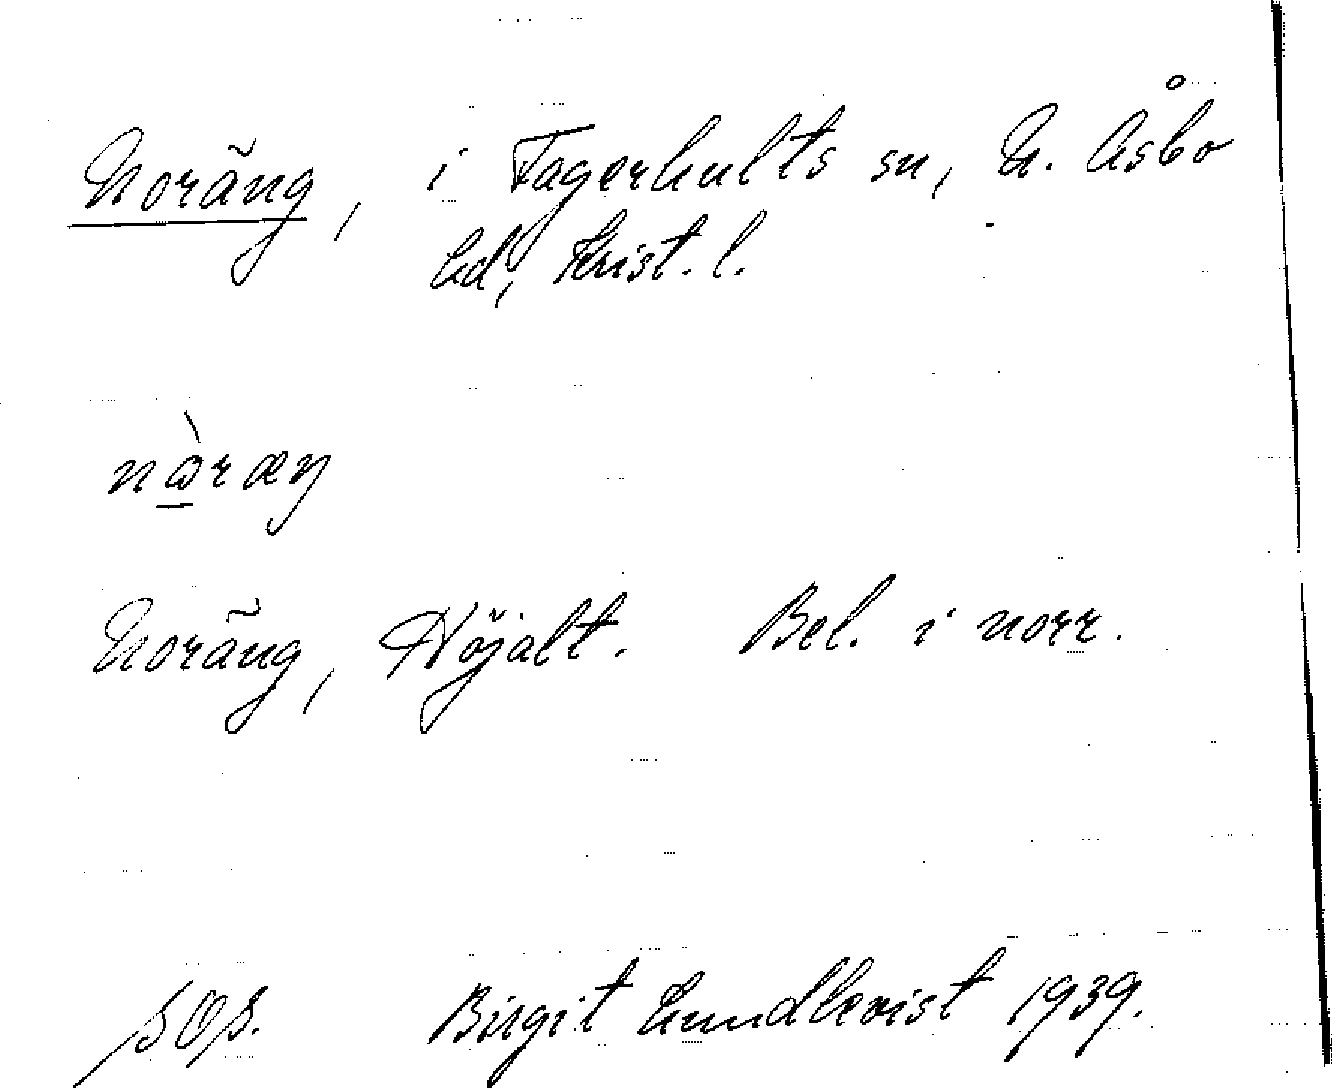 Noräng, i Fagerhults sn, N. Åsbo
hd, Krist. l.
nàræŋ
Noräng, Höjalt. Bel. i norr.
Birgit Lundkvist 1939.